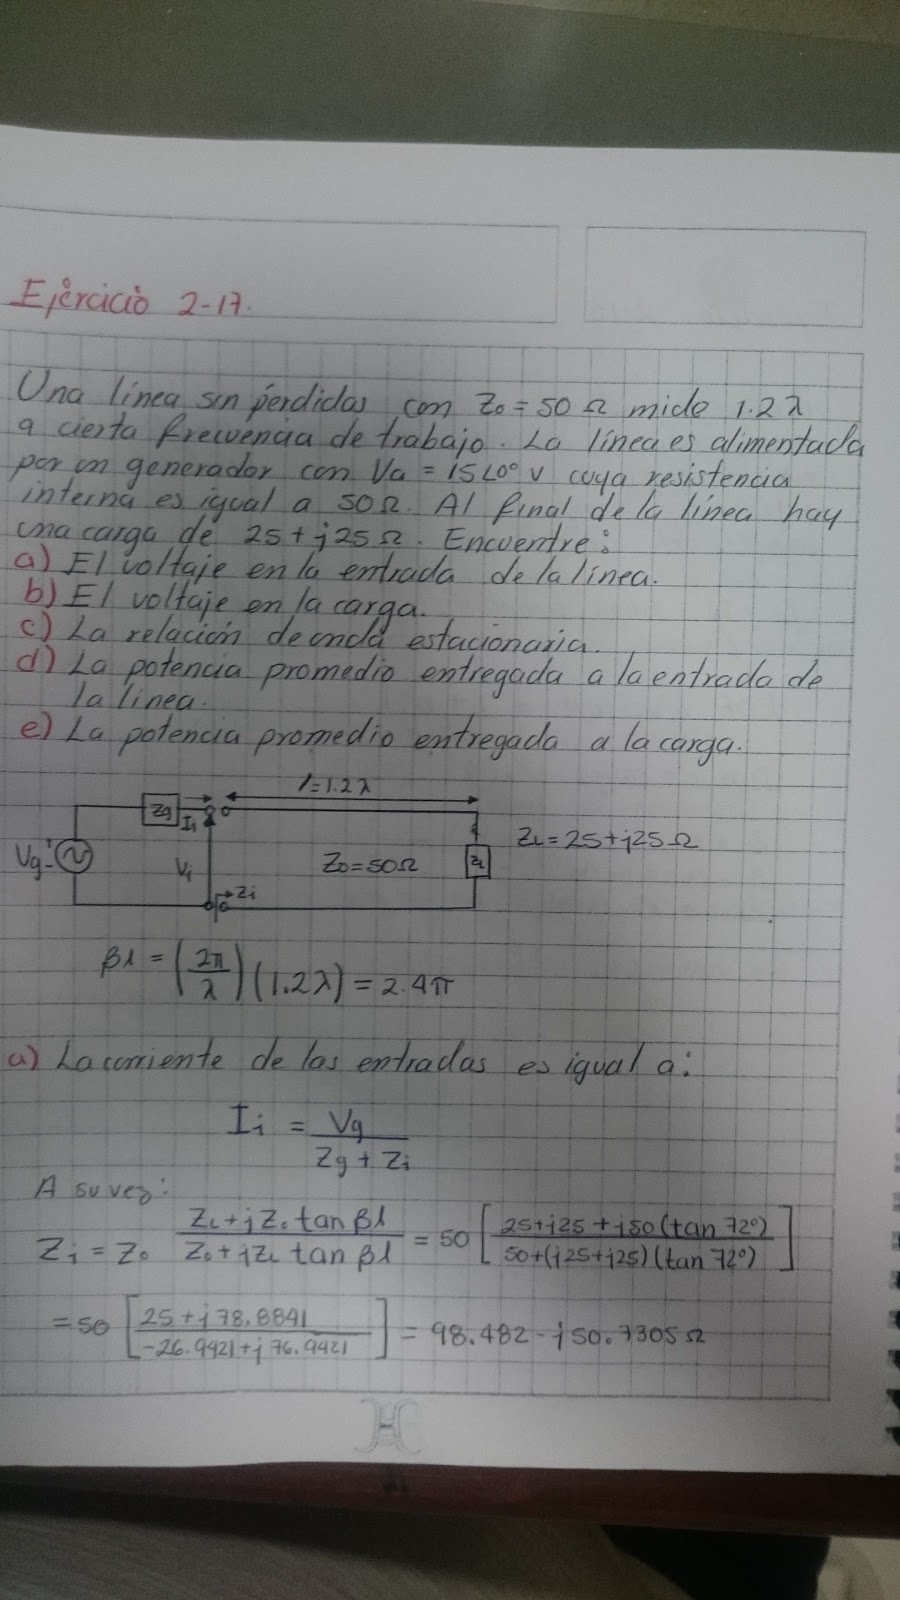 Ejercicio 2-17.
Una línea sin pérdidas con Z₀ = 50 Ω mide 1.2 λ
a cierta frecuencia de trabajo. La línea es alimentada
por un generador con Va = 15∠0° v cuya resistencia
interna es igual a 50Ω. Al final de la línea hay
una carga de 25 + j25 Ω. Encuentre:
a) El voltaje en la entrada de la línea.
b) El voltaje en la carga.
c) La relación de onda estacionaria.
d) La potencia promedio entregada a la entrada de
la línea.
e) La potencia promedio entregada a la carga.
l = 1.2 λ
Zg
I₁
Vg
Vi
Zi
Z₀ = 50Ω
ZL
ZL = 25 + j25 Ω
βl = (2π/λ)(1.2λ) = 2.4π
a) La corriente de las entradas es igual a:
Ii = Vg / (Zg + Zi)
A su vez:
Zi = Z₀ (ZL + jZ₀ tan βl) / (Z₀ + jZL tan βl) = 50 [(25+j25 + j50 (tan 72°)) / (50+(j25+j25)(tan 72°))]
= 50 [(25 + j 78.8841) / (-26.9421 + j 76.9421)] = 98.482 - j50.7305 Ω